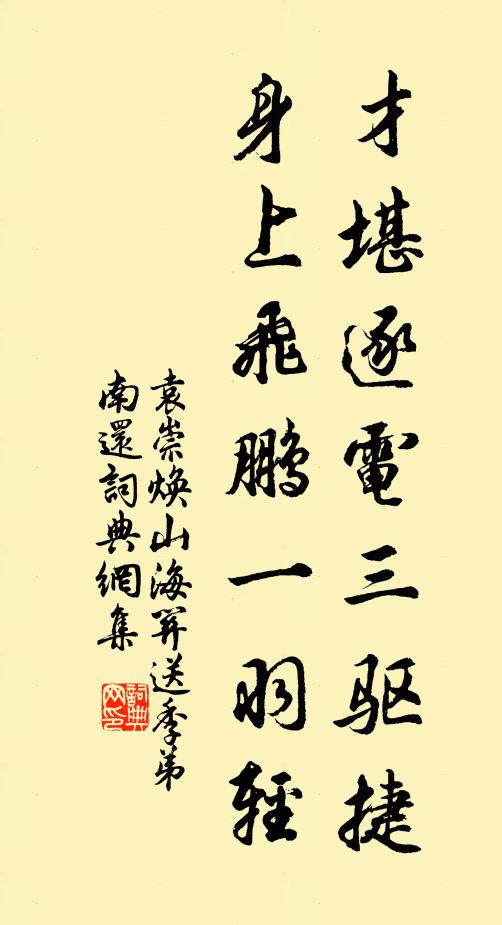 才堪逐電三驱捷
身上飛鵬一羽輕
袁崇煥山海關送季弟
南還詞典網集
詞典
网印